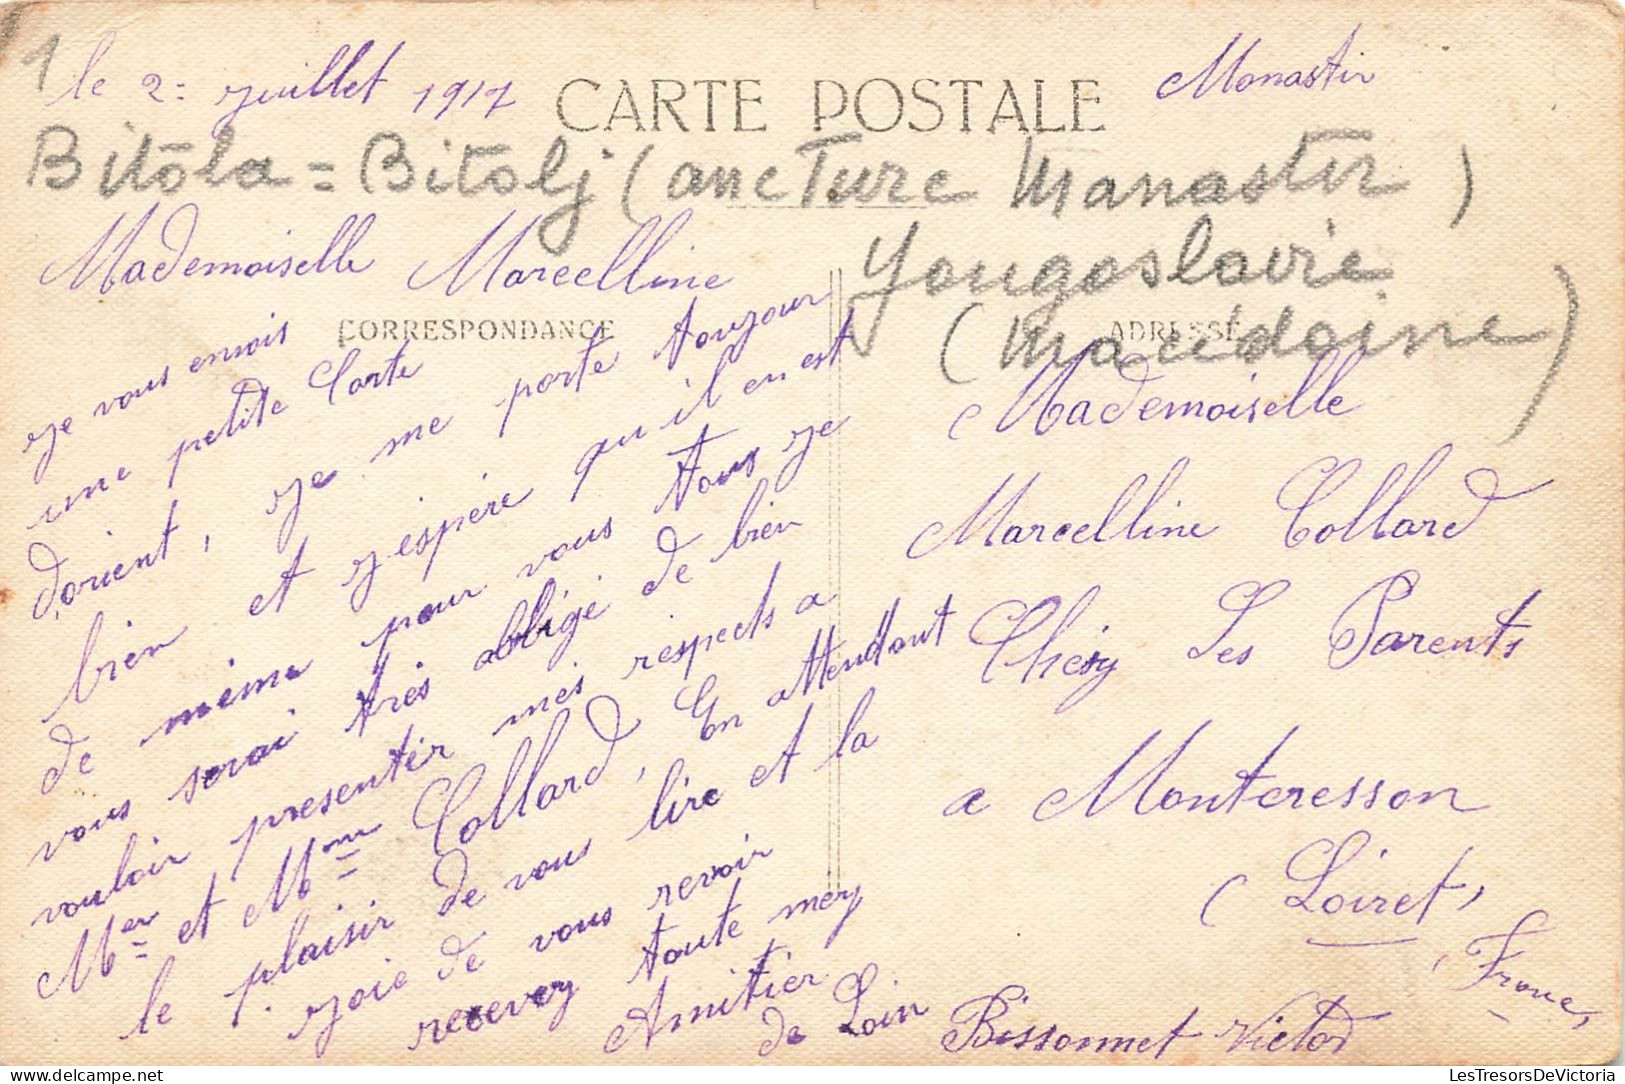 1
le 2= juillet 1917
CARTE POSTALE
Monastir
Bitōla = Bitolj (anc Turc Manastir)
Yougoslavie
(Macédoine)
CORRESPONDANCE
ADRESSE
Mademoiselle Marcelline
je vous envois
une petite Carte
d'orient, je me porte toujour
bien et j'espére qu'il en est
de même pour vous tous je
vous serai trés obligé de bien
vouloir presenter mes respects a
Mer et Mme Collard, En attendant
le plaisir de vous lire et la
joie de vous revoir
recevez toute mes
Amitier
de Loin
Bissonnet Victor
Mademoiselle
Marcelline Collard
Chésy Les Parents
a Monteresson
(Loiret,
France,
LesTresorsDeVictoria